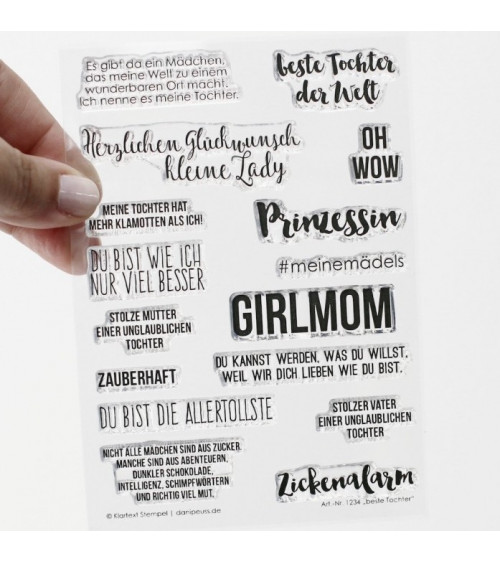 Es gibt da ein Mädchen,
das meine Welt zu einem
wunderbaren Ort macht.
Ich nenne es meine Tochter.
beste Tochter
der Welt
Herzlichen Glückwunsch
kleine Lady
OH
WOW
MEINE TOCHTER HAT
MEHR KLAMOTTEN ALS ICH!
Prinzessin
DU BIST WIE ICH
NUR VIEL BESSER
#meinemädels
GIRLMOM
STOLZE MUTTER
EINER UNGLAUBLICHEN
TOCHTER
DU KANNST WERDEN, WAS DU WILLST.
WEIL WIR DICH LIEBEN WIE DU BIST.
ZAUBERHAFT
DU BIST DIE ALLERTOLLSTE
STOLZER VATER
EINER UNGLAUBLICHEN
TOCHTER
NICHT ALLE MÄDCHEN SIND AUS ZUCKER.
MANCHE SIND AUS ABENTEUERN,
DUNKLER SCHOKOLADE,
INTELLIGENZ, SCHIMPFWÖRTERN
UND RICHTIG VIEL MUT.
Zickenalarm
© Klartext Stempel | danipeuss.de
Art.-Nr. 1234 „beste Tochter"